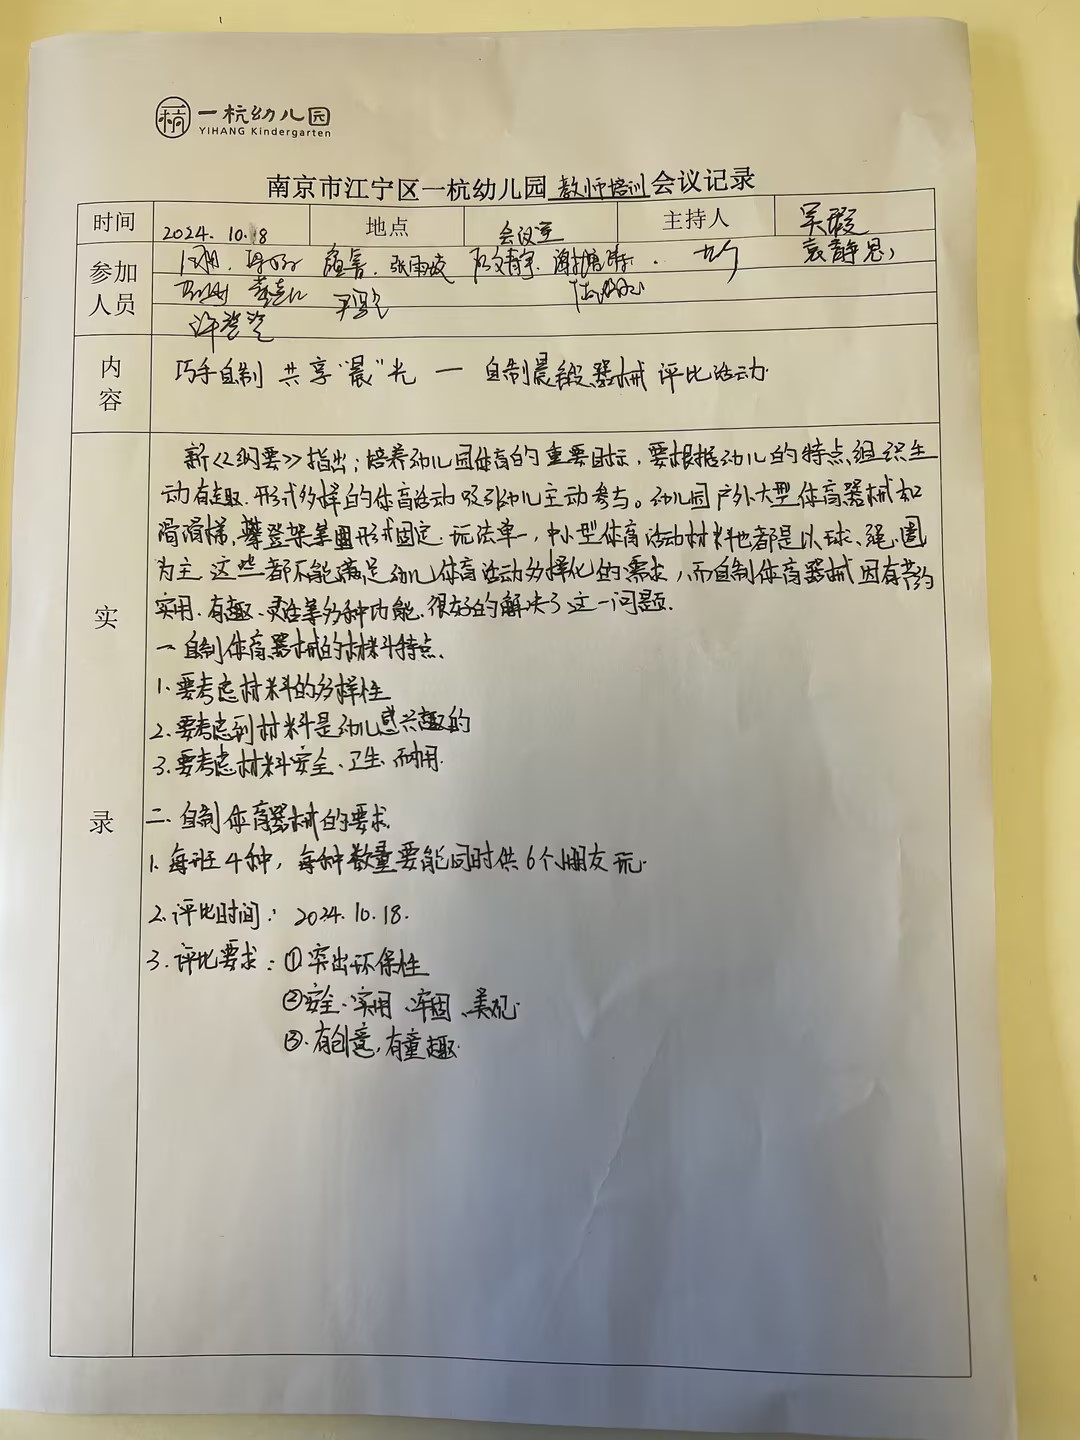 一杭幼儿园
YIHANG Kindergarten
南京市江宁区一杭幼儿园 教师培训 会议记录
时间 2024.10.8 地点 会议室 主持人 吴瑕
参加人员 张雨 袁静思
内容 巧手自制 共享"晨"光 — 自制晨锻器械评比活动
实录
新《纲要》指出;培养幼儿园体育的重要目标,要根据幼儿的特点组织生
动有趣.形式多样的体育活动吸引幼儿主动参与。幼儿园户外大型体育器械如
滑滑梯,攀登架等形式固定.玩法单一,中小型体育活动材料也都是以球、绳、圈
为主 这些都不能满足幼儿体育活动多样化的需求,而自制体育器械因有节约
实用.有趣、灵活等多种功能.很好的解决了这一问题.
一 自制体育器械的材料特点.
1.要考虑材料的多样性
2.要考虑到材料是幼儿感兴趣的
3.要考虑材料安全、卫生、耐用.
二.自制体育器械的要求.
1.每班4种,每种数量要能同时供6个小朋友玩.
2.评比时间: 2024.10.18.
3.评比要求:①突出环保性
②安全、实用、牢固、美观.
③.有创意,有童趣.